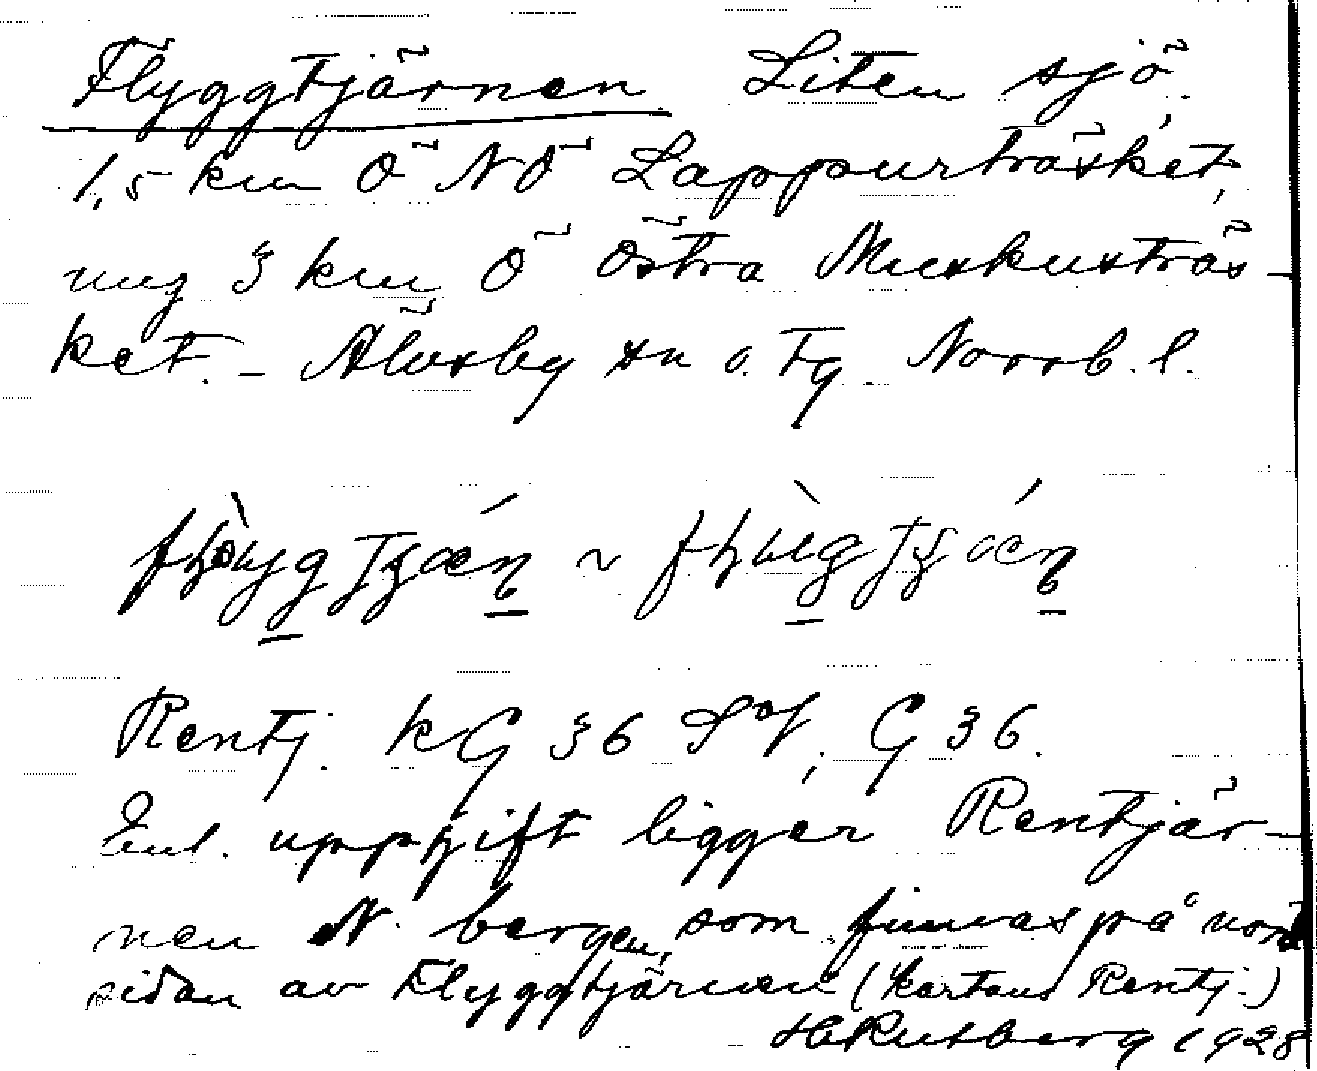 Flyggtjärnen Liten sjö,
1,5 km Ö NÖ Lappurträsket,
ung 3 km Ö Östra Muskusträs-
ket. - Älvsby sn o. tg. Norrb. l.
~
Rentj. kG 36 SV; G 36.
Enl. uppgift ligger Rentjär-
nen N. bergen, som finnas på nord
sidan av Flyggtjärnen (kartans Rentj.)
H Rutberg 1928